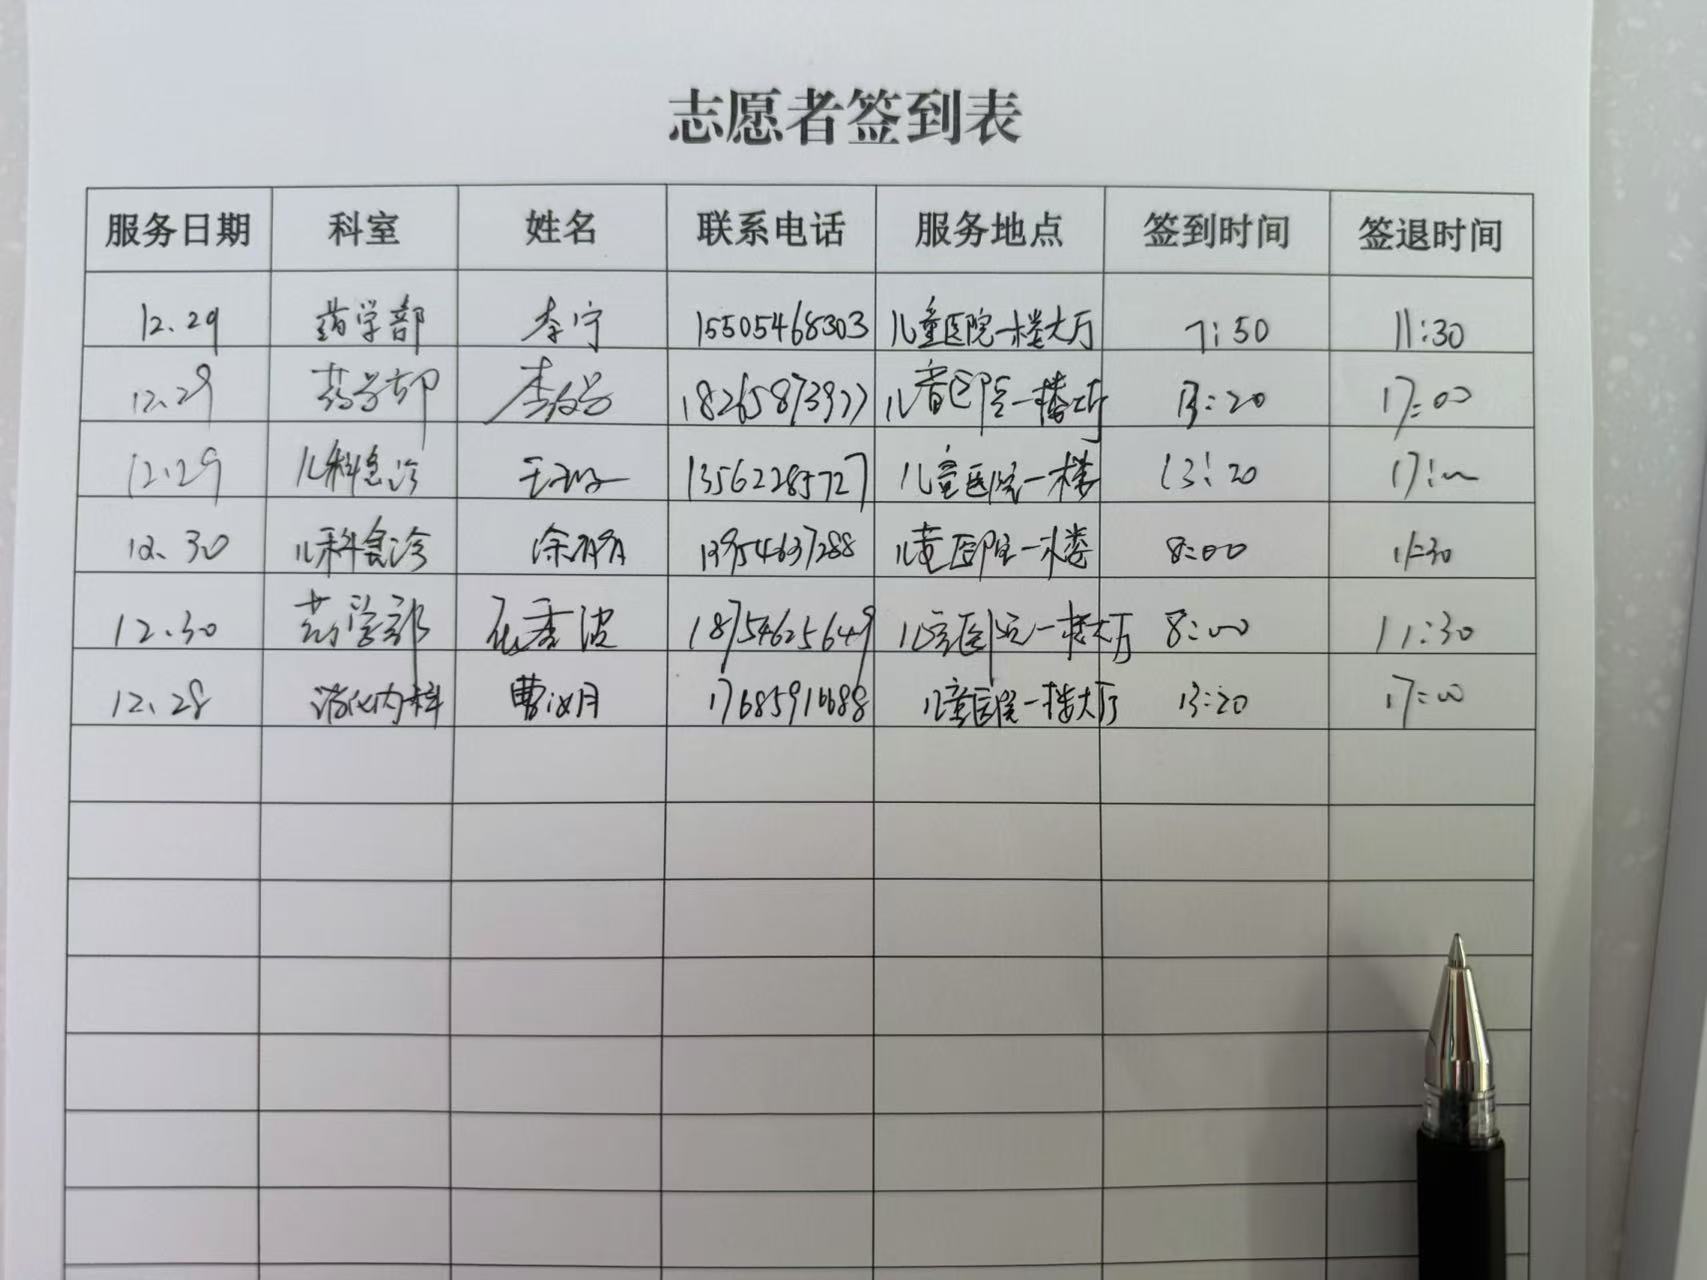 志愿者签到表
服务日期 科室 姓名 联系电话 服务地点 签到时间 签退时间
12.29 药学部 李宁 15505468303 儿童医院一楼大厅 7:50 11:30
12.29 药学部 18265873977 儿童医院一楼大厅 13:20 17:00
12.29 儿科急诊 13562285727 儿童医院一楼 13:20 17:00
12.30 儿科急诊 13954637288 儿童医院一楼 8:00 11:30
12.30 药学部 18754625649 儿童医院一楼大厅 8:00 11:30
12.28 消化内科 曹汝月 儿童医院一楼大厅 13:20 17:00